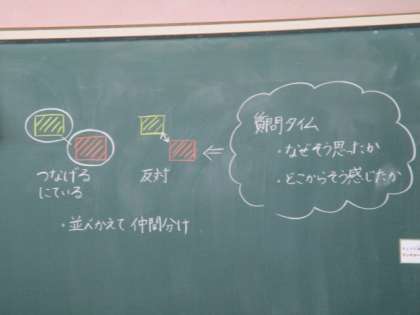 つなげる
にている
反対
・並べかえて 仲間分け
質問タイム
・なぜそう思ったか
・どこからそう感じたか